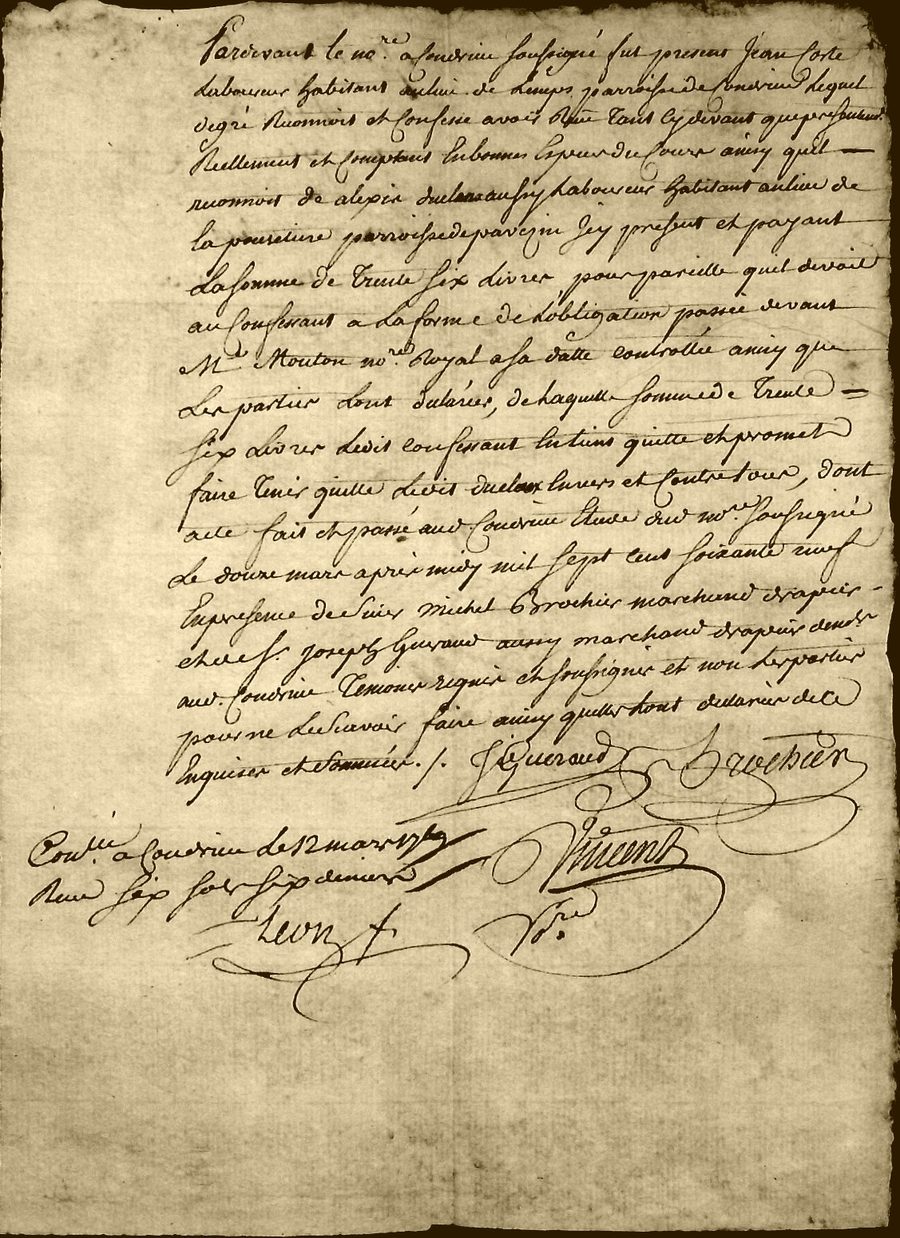 Pardevant le no.re a Condrieu soussigné fut present Jean Coste
Laboureur habitant au lieu de parroisse de Condrieu Lequel
de gré Reconnoit et Confesse avoir Reçu Tant Cy devant que presentement
Reellement et Comptant En bonnes Especes du Cours ainsy quil
reconnoit de alexis duclaux aussy Laboureur habitant au lieu de
la parroisse de Icy present et payant
La somme de Trente six Livres, pour pareille quil devoit
au Confessant a La forme de Lobligation passée devant
M.e Mouton no.re Royal a sa datte controllée ainsy que
Les parties Lont declarées, de Laquelle somme de Trente
six Livres Ledit confessant En tient quitte et promet
faire Tenir quitte Ledit duclaux Envers et Contre tous, dont
acte fait et passé aud. Condrieu Etude dud no.re soussigné
Le douze mars après midy mil sept cent soixante neuf
En presence de Sieur Michel Brochier marchand drapier
et de S.r Joseph Gueraud aussy marchand drapier
aud. Condrieu Temoins requis et soussignés et non Les parties
pour ne Le Scavoir faire ainsy quelles Lont declarées de ce
Enquises et Sommées ./. J Gueraud Brochier
Con.lé a Condrieu Le 12 mars 1769 Vincent
Reçu six sols six deniers
Leon no.re